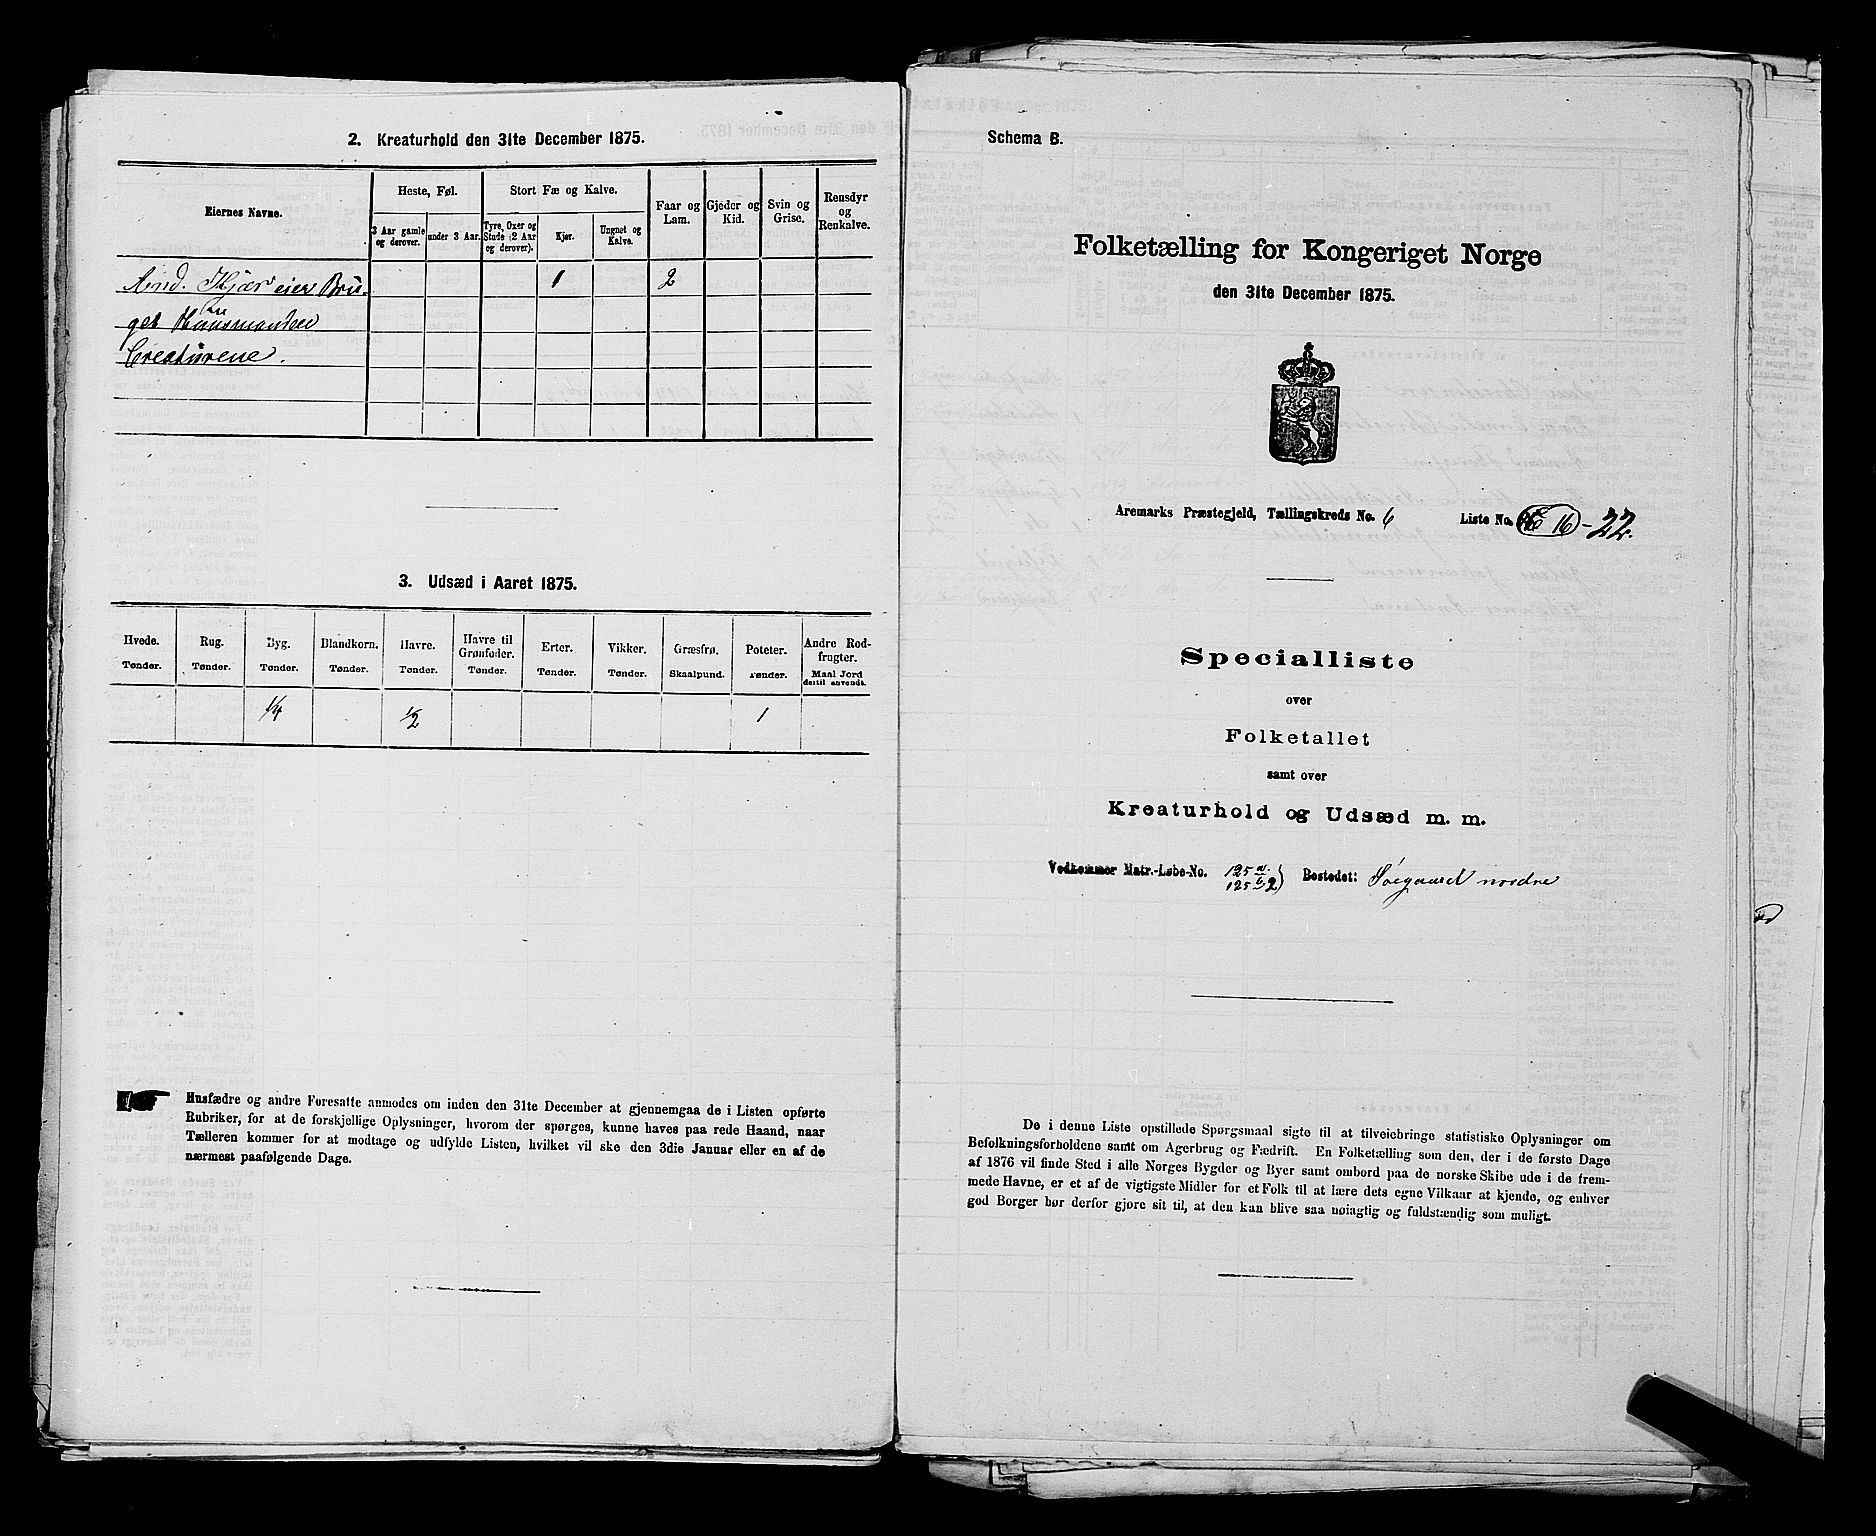 2. Kreaturhold den 31te December 1875.
Eiernes Navne.
Heste, Føl.
Stort Fæ og Kalve.
Faar og Lam.
Gjeder og Kid.
Svin og Grise.
Rensdyr og Renkalve.
3 Aar gamle og derover.
under 3 Aar.
Tyre, Oxer og Stude (2 Aar og derover).
Kjør.
Ungnet og Kalve.
And. Kjær eier Bru- 1 2
get Huusmanden
Creaturene.
3. Udsæd i Aaret 1875.
Hvede. Rug. Byg. Blandkorn. Havre. Havre til Grønfoder. Erter. Vikker. Græsfrø. Poteter. Andre Rodfrugter.
Tønder. Tønder. Tønder. Tønder. Tønder. Tønder. Tønder. Tønder. Skaalpund. Tønder. Maal Jord dertil anvendt.
1/4 1/2 1
Husfædre og andre Foresatte anmodes om inden den 31te December at gjennemgaa de i Listen opførte
Rubriker, for at de forskjellige Oplysninger, hvorom der spørges, kunne haves paa rede Haand, naar
Tælleren kommer for at modtage og udfylde Listen, hvilket vil ske den 3die Januar eller en af de
nærmest paafølgende Dage.
Schema B.
Folketælling for Kongeriget Norge
den 31te December 1875.
Aremarks Præstegjeld, Tællingskreds No. 6 Liste No. 16 - 22.
Specialliste
over
Folketallet
samt over
Kreaturhold og Udsæd m. m.
Vedkommer Matr.-Løbe-No. 125 a. Bostedet: Søegaard nordre
125 b 2
De i denne Liste opstillede Spørgsmaal sigte til at tilveiebringe statistiske Oplysninger om
Befolkningsforholdene samt om Agerbrug og Fædrift. En Folketælling som den, der i de første Dage
af 1876 vil finde Sted i alle Norges Bygder og Byer samt ombord paa de norske Skibe ude i de frem-
mede Havne, er et af de vigtigste Midler for et Folk til at lære dets egne Vilkaar at kjende, og enhver
god Borger bør derfor gjøre sit til, at den kan blive saa nøiagtig og fuldstændig som muligt.